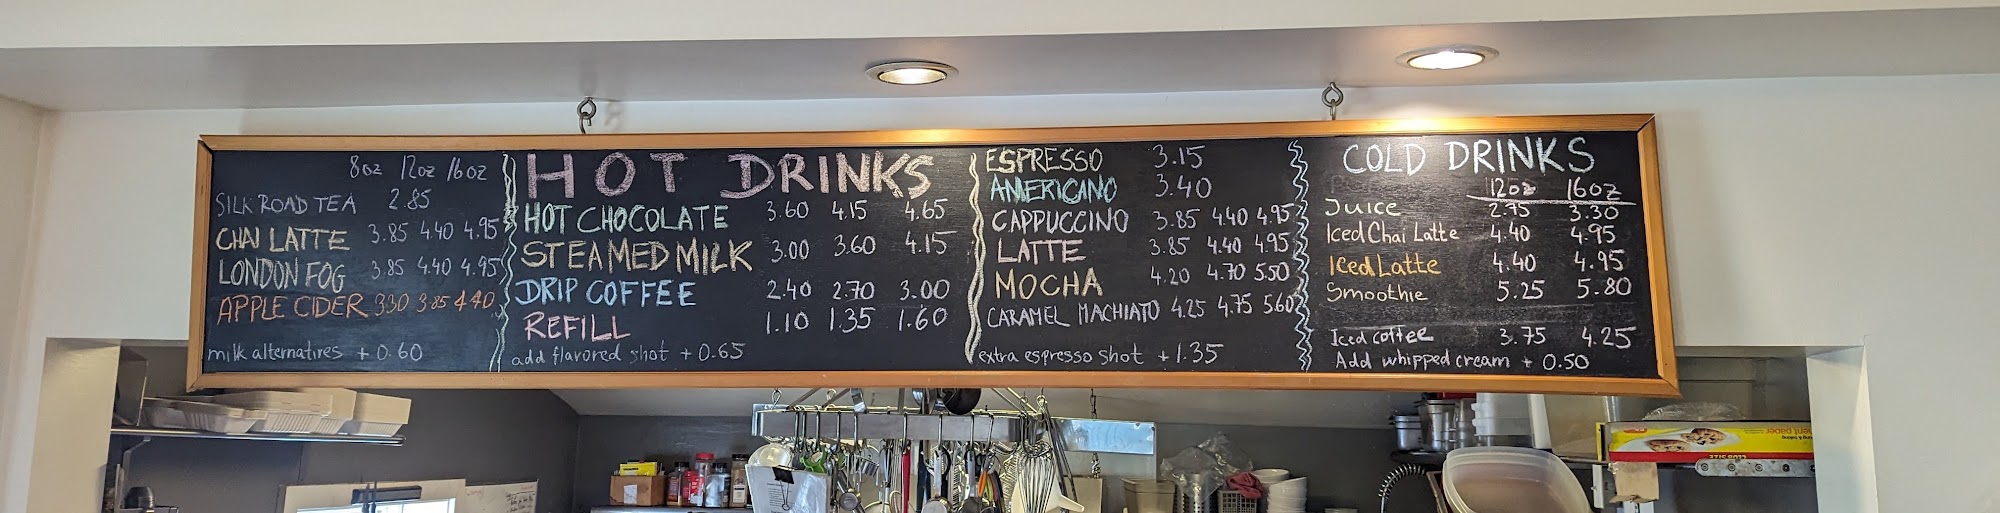 8oz 12oz 16oz
SILK ROAD TEA 2.85
CHAI LATTE 3.85 4.40 4.95
LONDON FOG 3.85 4.40 4.95
APPLE CIDER 3.30 3.85 4.40
milk alternatives + 0.60
HOT DRINKS
HOT CHOCOLATE 3.60 4.15 4.65
STEAMED MILK 3.00 3.60 4.15
DRIP COFFEE 2.40 2.70 3.00
REFILL 1.10 1.35 1.60
add flavored shot + 0.65
ESPRESSO 3.15
AMERICANO 3.40
CAPPUCCINO 3.85 4.40 4.95
LATTE 3.85 4.40 4.95
MOCHA 4.20 4.70 5.50
CARAMEL MACHIATO 4.25 4.75 5.60
extra espresso shot + 1.35
COLD DRINKS
12oz 16oz
Juice 2.75 3.30
Iced Chai Latte 4.40 4.95
Iced Latte 4.40 4.95
Smoothie 5.25 5.80
Iced coffee 3.75 4.25
Add whipped cream + 0.50
CLUB SIZE